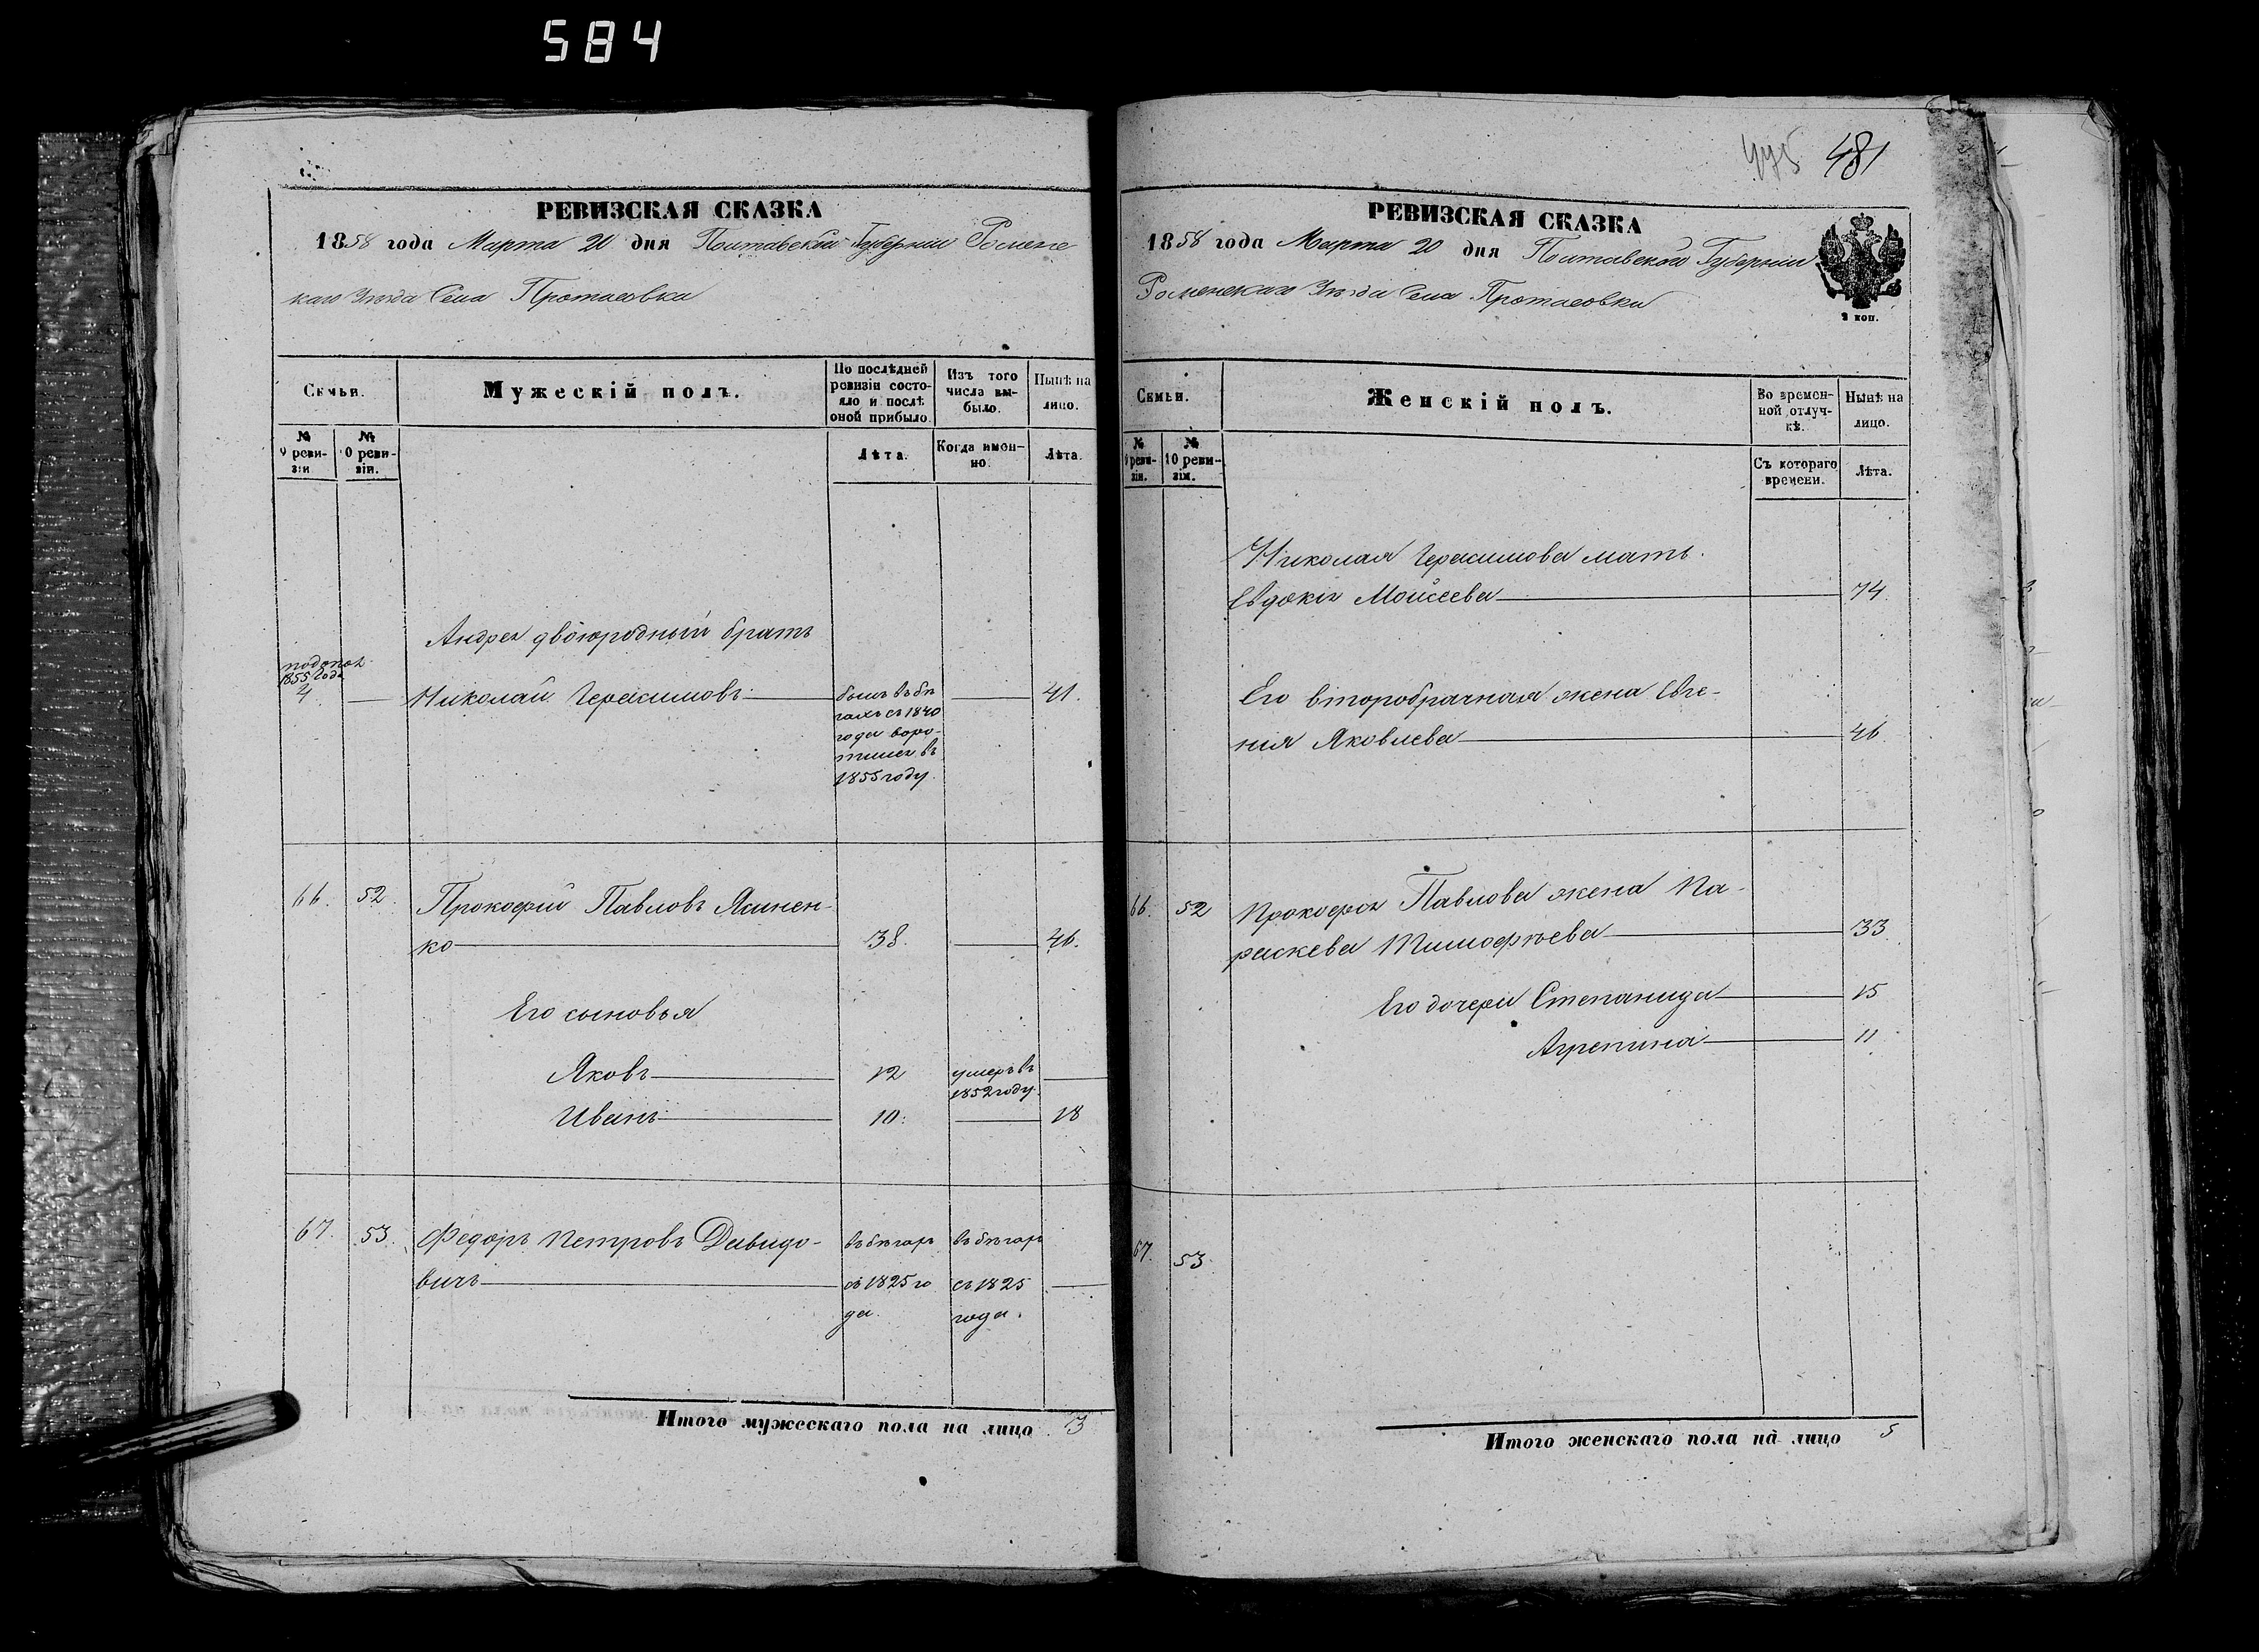 584
РЕВИЗСКАЯ СКАЗКА
1858 года Марта 20 дня Полтавской Губерніи Роменс
каго Уѣзда Села Протасовки
Семьи.
Мужескій полъ.
По послѣдней ревизіи состояло и послѣ оной прибыло.
Изъ того числа выбыло.
Нынѣ на лицо.
№ 9 ревизіи
№ 10 ревизіи.
Лѣта.
Когда имѳнно.
Лѣта.
Андрея двоюродный братъ
1855 года
4
Николай Герасимовъ
былъ въ бѣ
гахъ съ 1840
года воро-
тился въ
1855 году.
41.
66. 52. Прокофій Павловъ Якинен-
ко 38. 46.
Его сыновья
Яковъ 12 умеръ въ
1852 году.
Иванъ 10. 18
67. 53. Федоръ Петровъ Давидо- въ бѣгахъ въ бѣгахъ
вичъ съ 1825 го съ 1825
да. года.
Итого мужескаго пола на лицо 3
475 481
РЕВИЗСКАЯ СКАЗКА
1858 года Марта 20 дня Полтавской Губерніи
Роменскаго Уѣзда Села Протасовки
2 коп.
Семьи.
Женскій полъ.
Во временной отлучкѣ.
Нынѣ на лицо.
№ 9 ревизіи.
№ 10 ревизіи.
Съ котораго времени.
Лѣта.
Николая Герасимова мать
Евдокія Моисеева 74
Его второбрачная жена Евге-
нія Яковлева 46
66. 52 Прокофія Павлова жена Па-
раскева Тимофѣева 33
Его дочери Степанида 15
Агрепина 11
67. 53.
Итого женскаго пола на лицо 5